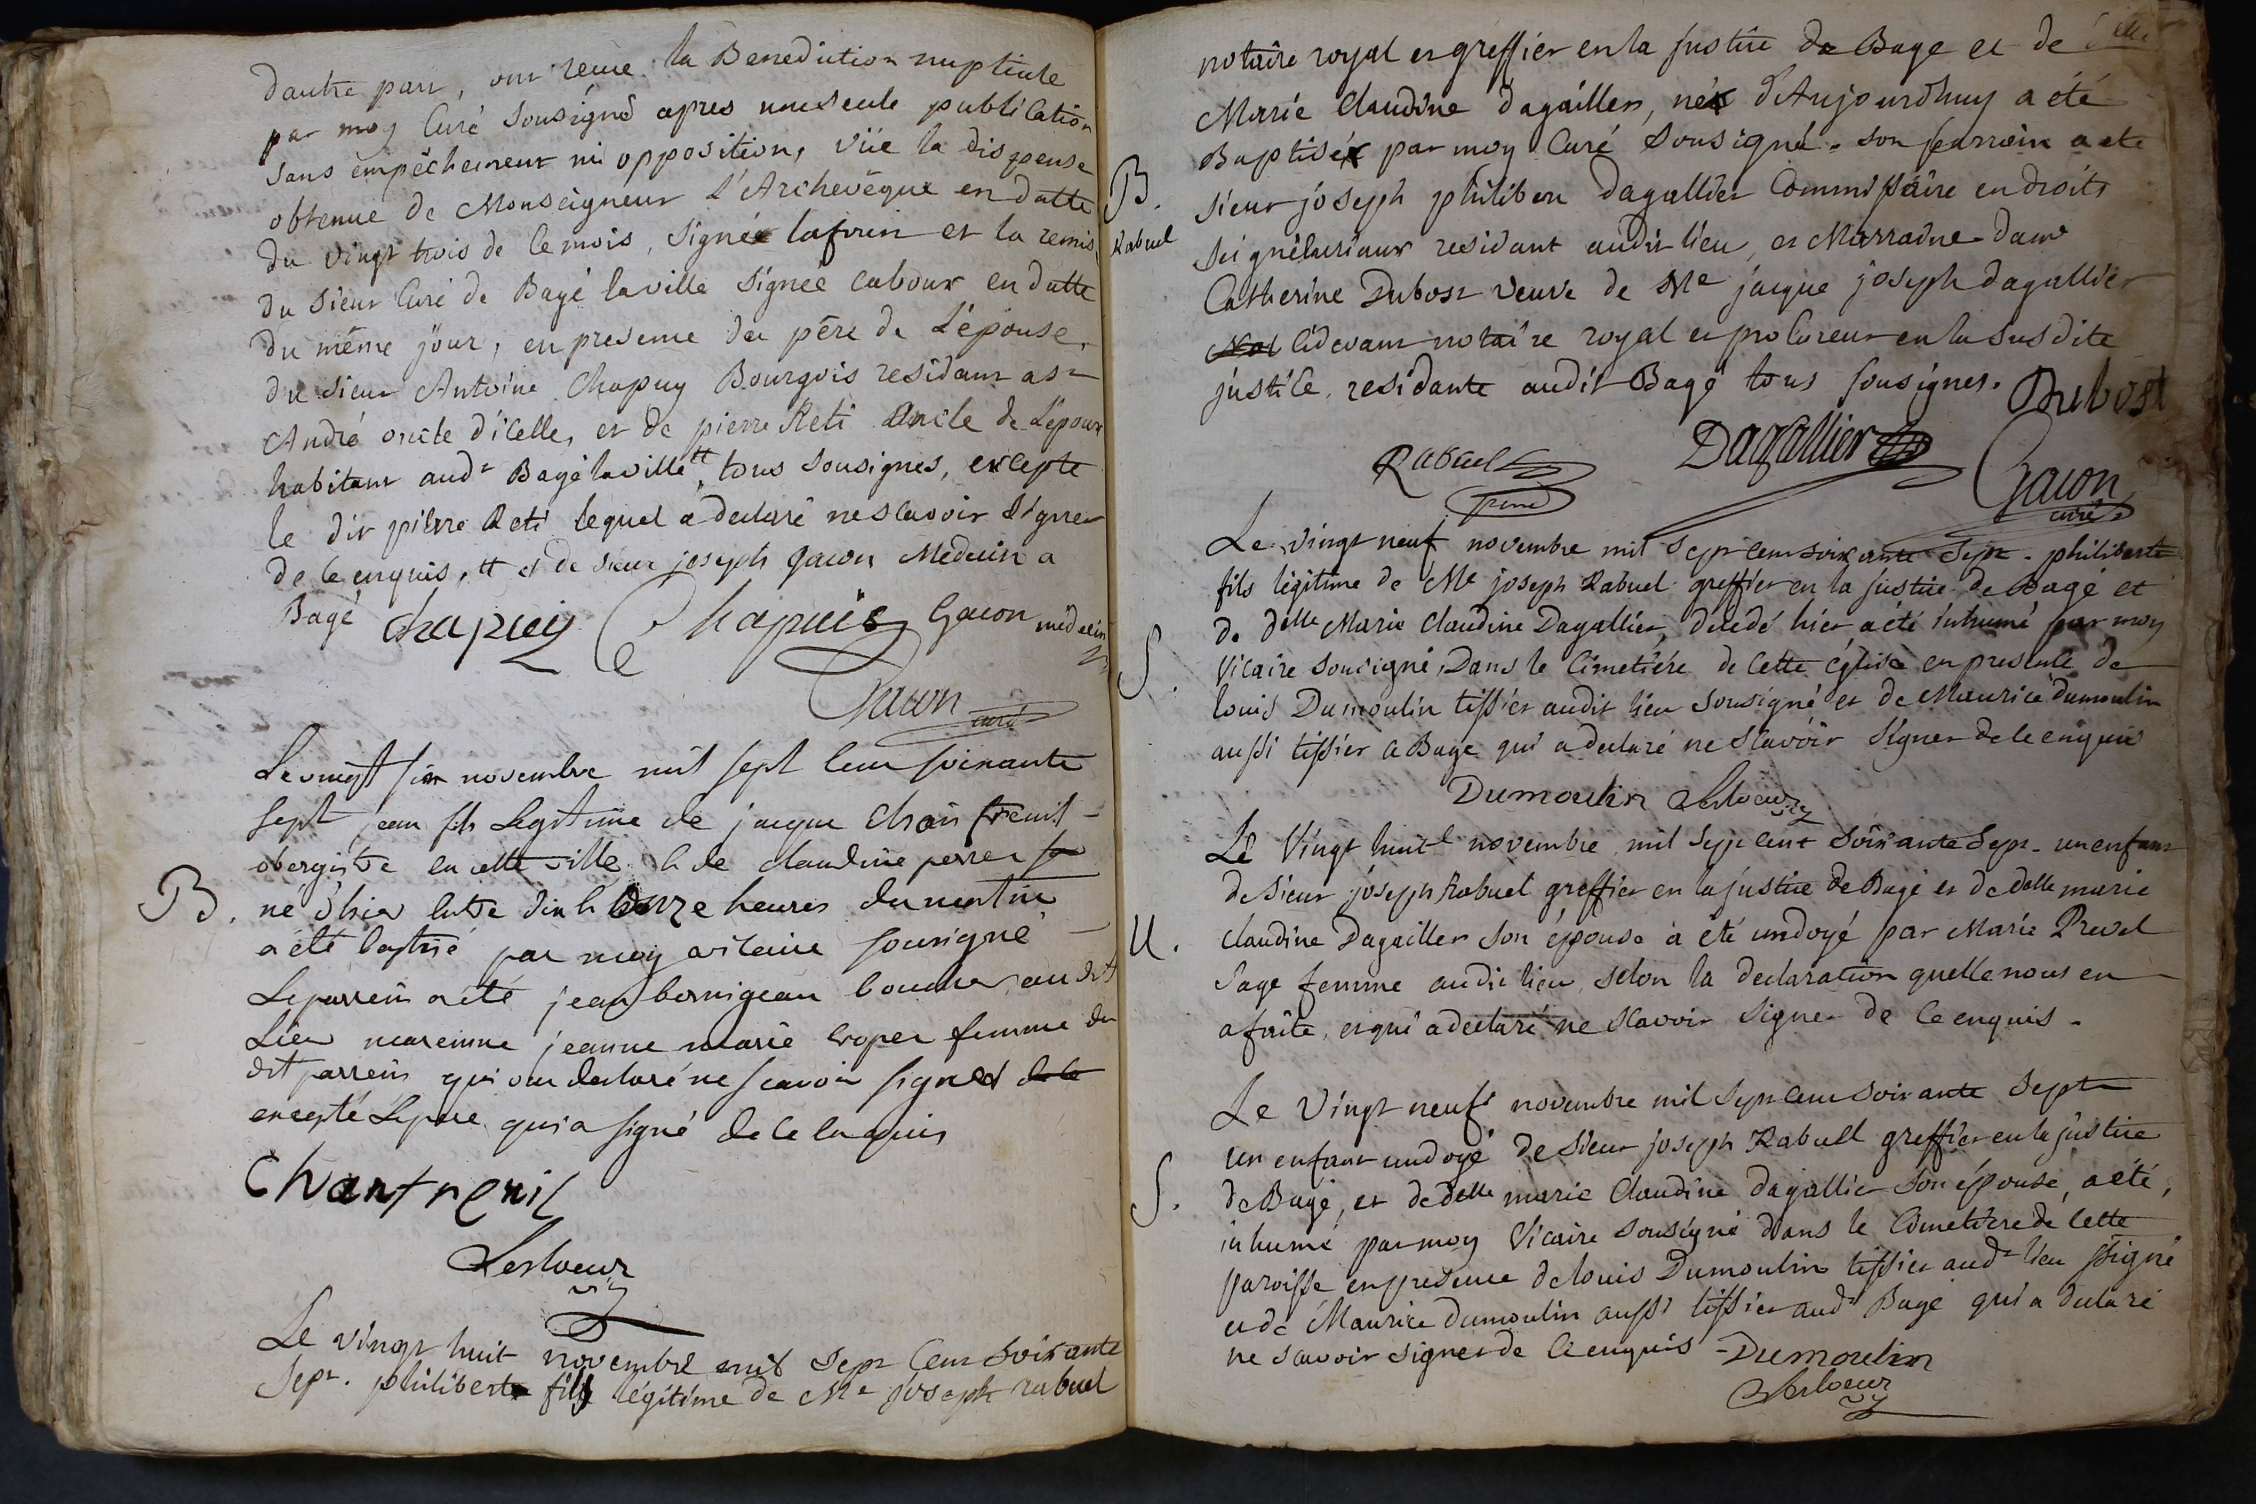 dautre part, ont reçue la Benediction nuptiale
par moy Curé Sousigné apres une seule publication
sans empêchement ni opposition, vüe la dispense
obtenue de Monseigneur L'Archevêque en datte
du vingt trois de ce mois, signée lafrin et la remise
du sieur Curé de Bagé la ville signée cabour en datte
du même jour, en presence du père de L'épouse,
du sieur Antoine Chapuy Bourgois residant a st
André oncle d'icelle, et de pierre Reti Oncle de L'époux
habitant audt Bagé la ville tt tous sousignés, excepté
le dit pierre Reti lequel a declaré ne scavoir signer
de ce enquis, tt et de sieur joseph Gacon Medecin a
Bagé chapuy Chapuis Gacon médecin
Gacon curé
Le vingt six novembre mil sept cent soixante
sept jean fils Legitime de jacque Chanfreuil
obergiste en cette ville & de claudine perret
B. né d'hier entre dix & onze heures du matin
a été baptisé par moy vicaire sousigné
Le parrein a été jean bernigeau boucher audit
Lieu mareinne jeanne marie femme du
dit parrein qui ont declaré ne scavoir signer de ce
excepté Le pere qui a signé de ce enquis
Chantreuil
Lesloeur
Le vingt huit novembre mil sept cent soixante
sept. philibert fils légitime de Me joseph rabuel
notaire royal et greffier en la justice de Bage et de delle
Marie Claudine dagaillier, né d'Aujourdhuy a été
Baptisé par moy Curé Sousigné. son parrain a ete
B. Rabuel
sieur joseph philibert dagallier Commissaire en droits
seigneuriaux residant audit lieu, et Marraine dame
Catherine Dubost veuve de Me jacque joseph dagallier
Not cidevant notaire royal et procureur en la susdite
justice, residante audit Bagé tous sousignes. Dubost
Rabuel pere Dagallier Gacon curé
Le vingt neuf novembre mil sept cent soixante sept. philiberte
fils légitime de Me joseph Rabuel greffier en la justice de Bagé et
de delle Marie Claudine Dagallier, décédé hier a été inhumé par moy
S. Vicaire sousigné, Dans le Cimetiére de Cette église en presence de
louis Dumoulin tissier audit lieu sousigné et de Maurice dumoulin
aussi tissier a Bage qui a declaré ne scavoir signer de ce enquis
Dumoulin Lesloeur
Le Vingt huit novembre mil sept cent soixante sept. un enfant
de sieur joseph Rabuel greffier en la justice de Bagé et de delle marie
U. claudine Dagaillier son épouse a été undoyé par Marie Prevel
sage femme audit lieu, selon la declaration quelle nous en
a faite, et qui a declaré ne scavoir signer de ce enquis.
Le Vingt neuf novembre mil sept cent soixante sept
un enfant undoyé de sieur joseph Rabuel greffier en la justice
S. de Bagé, et de delle marie Claudine dagallier son épouse, a été,
inhumé par moy Vicaire sousigné dans le Cimetiere de cette
paroisse en presence de louis Dumoulin tissier audt lieu ssigné
et de Maurice dumoulin aussi tissier audt Bagé qui a declaré
ne scavoir signer de ce enquis Dumoulin
Lesloeur